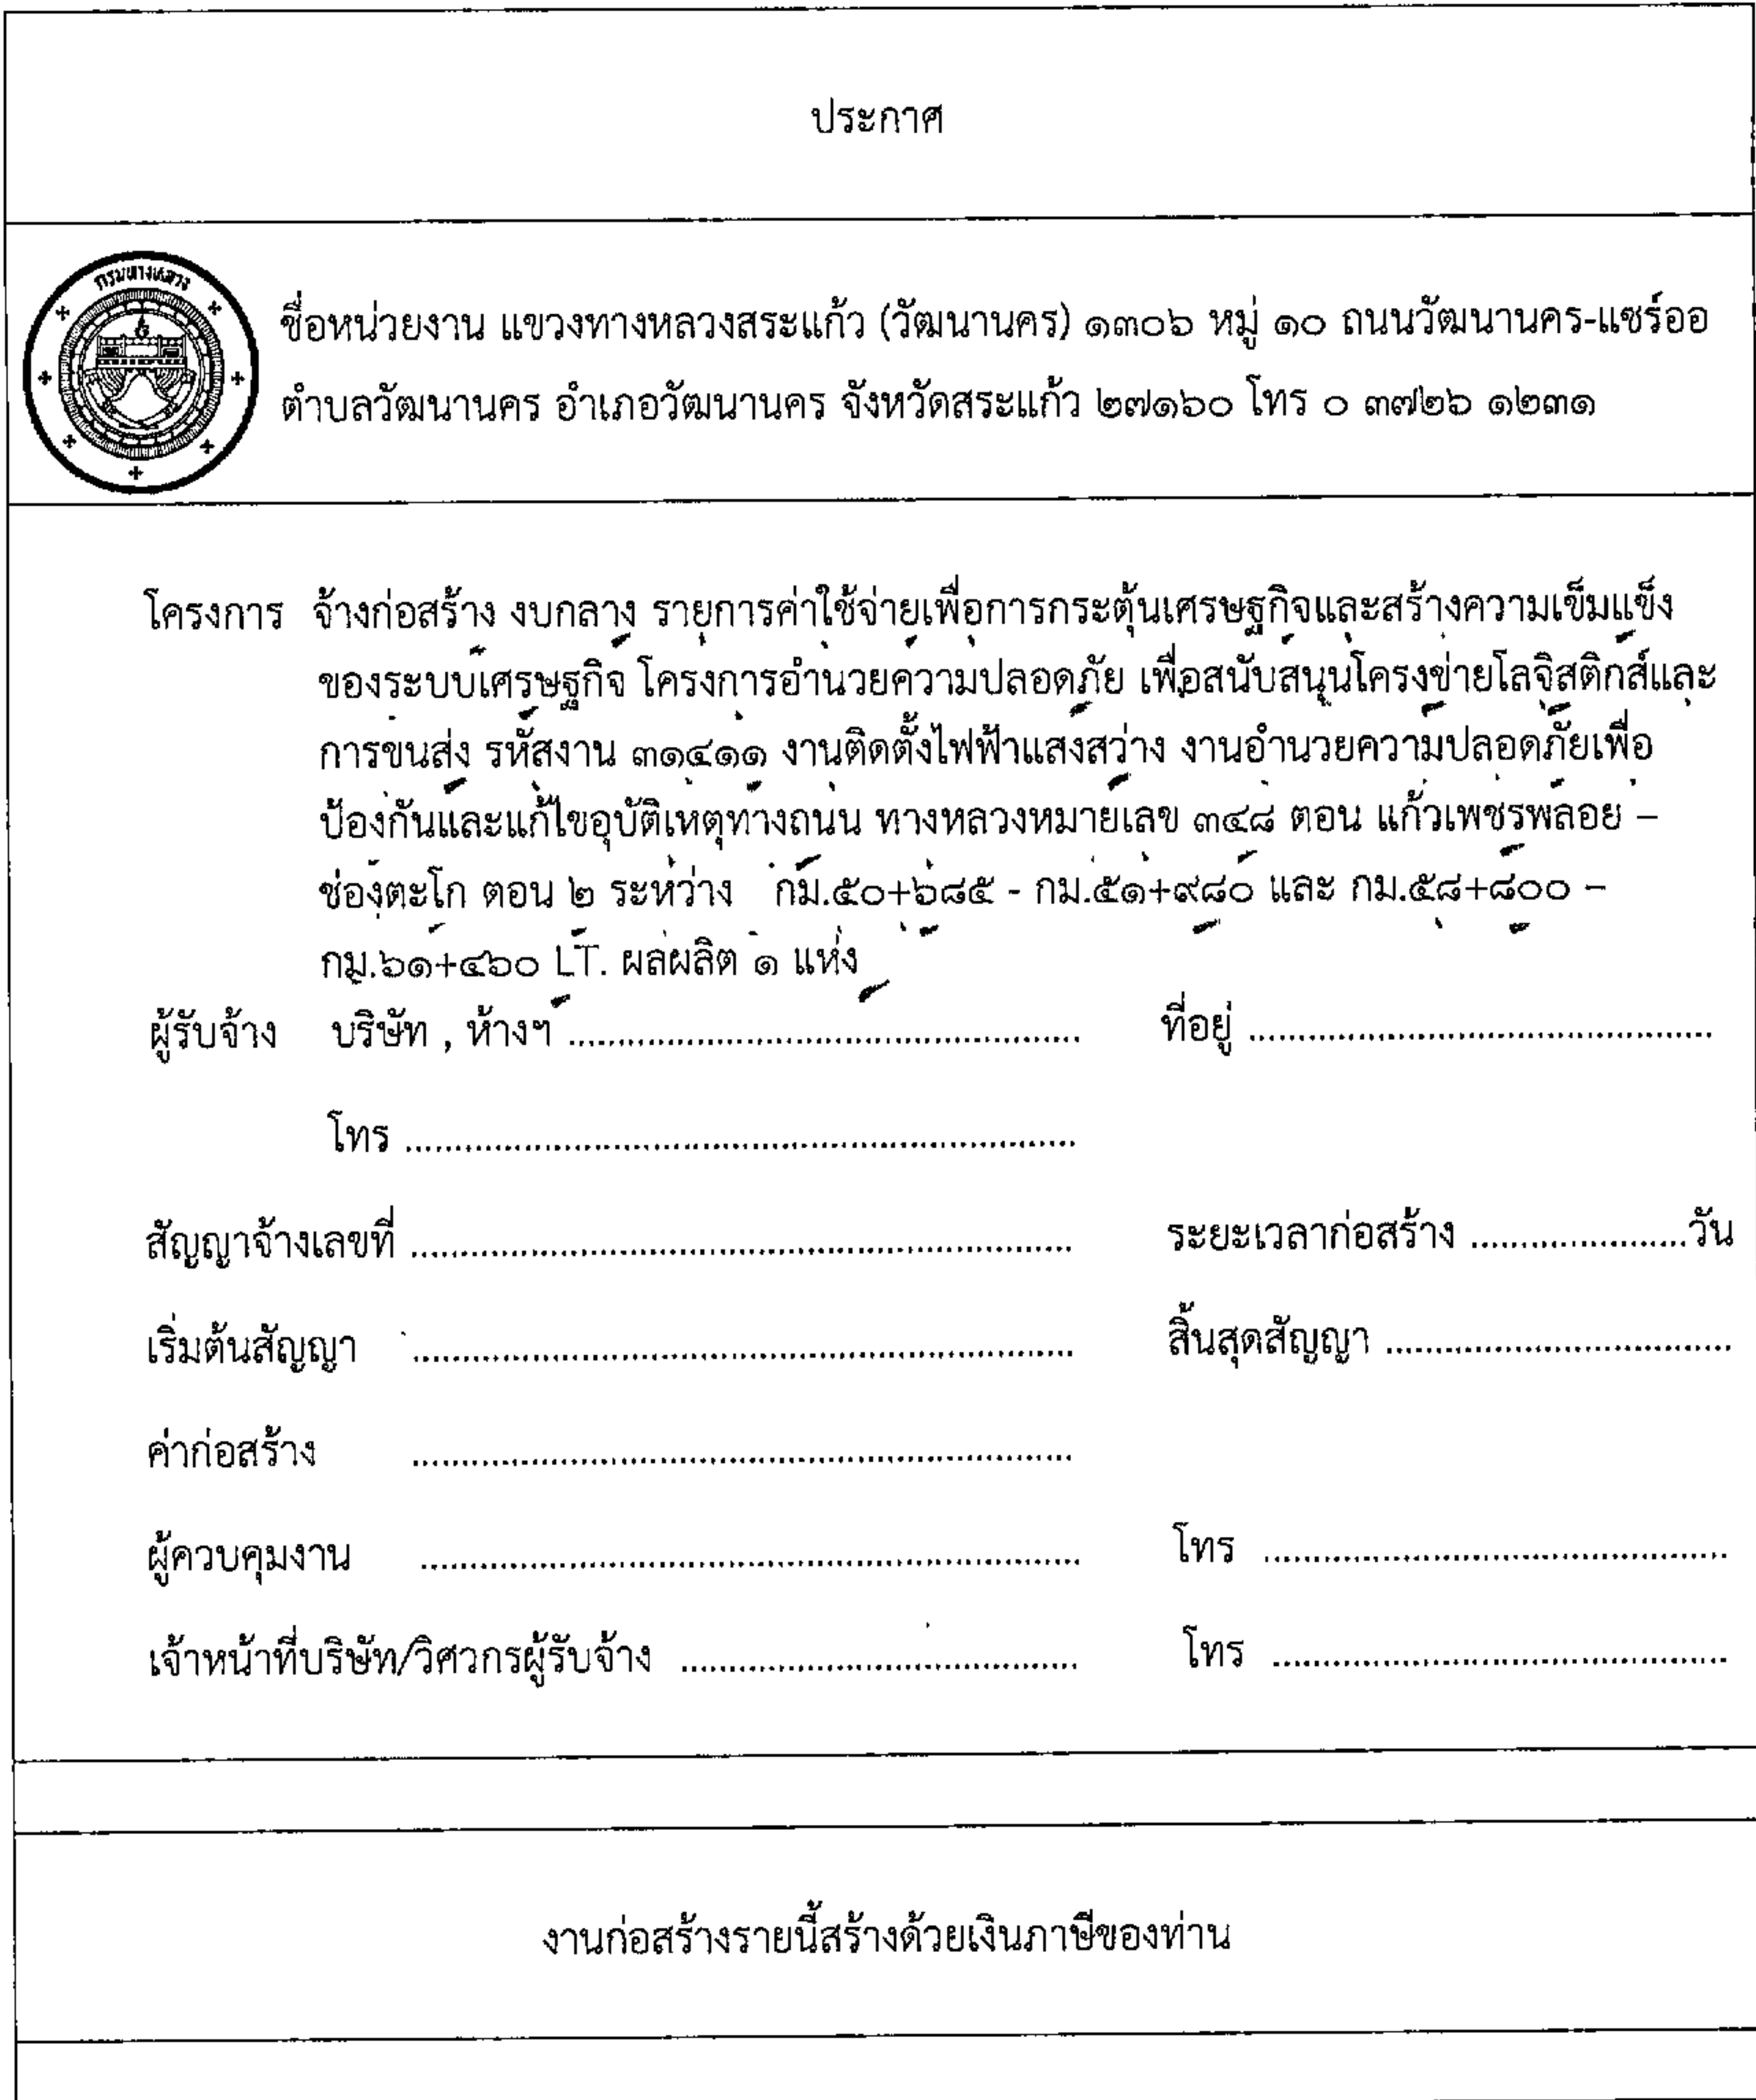 ประกาศ
กรมทางหลวง
ชื่อหน่วยงาน แขวงทางหลวงสระแก้ว (วัฒนานคร) ๑๓๐๖ หมู่ ๑๐ ถนนวัฒนานคร-แซร์ออ
ตำบลวัฒนานคร อำเภอวัฒนานคร จังหวัดสระแก้ว ๒๗๑๖๐ โทร ๐ ๓๗๒๖ ๑๒๓๑
โครงการ จ้างก่อสร้าง งบกลาง รายการค่าใช้จ่ายเพื่อการกระตุ้นเศรษฐกิจและสร้างความเข็มแข็ง
ของระบบเศรษฐกิจ โครงการอำนวยความปลอดภัย เพื่อสนับสนุนโครงข่ายโลจิสติกส์และ
การขนส่ง รหัสงาน ๓๑๔๑๑ งานติดตั้งไฟฟ้าแสงสว่าง งานอำนวยความปลอดภัยเพื่อ
ป้องกันและแก้ไขอุบัติเหตุทางถนน ทางหลวงหมายเลข ๓๔๘ ตอน แก้วเพชรพลอย –
ช่องตะโก ตอน ๒ ระหว่าง กม.๕๐+๖๘๕ - กม.๕๑+๙๘๐ และ กม.๕๘+๘๐๐ –
กม.๖๑+๔๖๐ LT. ผลผลิต ๑ แห่ง
ผู้รับจ้าง บริษัท , ห้างฯ ........................................ ที่อยู่ ........................................
โทร ........................................
สัญญาจ้างเลขที่ ........................................ ระยะเวลาก่อสร้าง ......................วัน
เริ่มต้นสัญญา ........................................ สิ้นสุดสัญญา ..................................
ค่าก่อสร้าง ........................................
ผู้ควบคุมงาน ........................................ โทร ........................................
เจ้าหน้าที่บริษัท/วิศวกรผู้รับจ้าง ........................................ โทร ........................................
งานก่อสร้างรายนี้สร้างด้วยเงินภาษีของท่าน